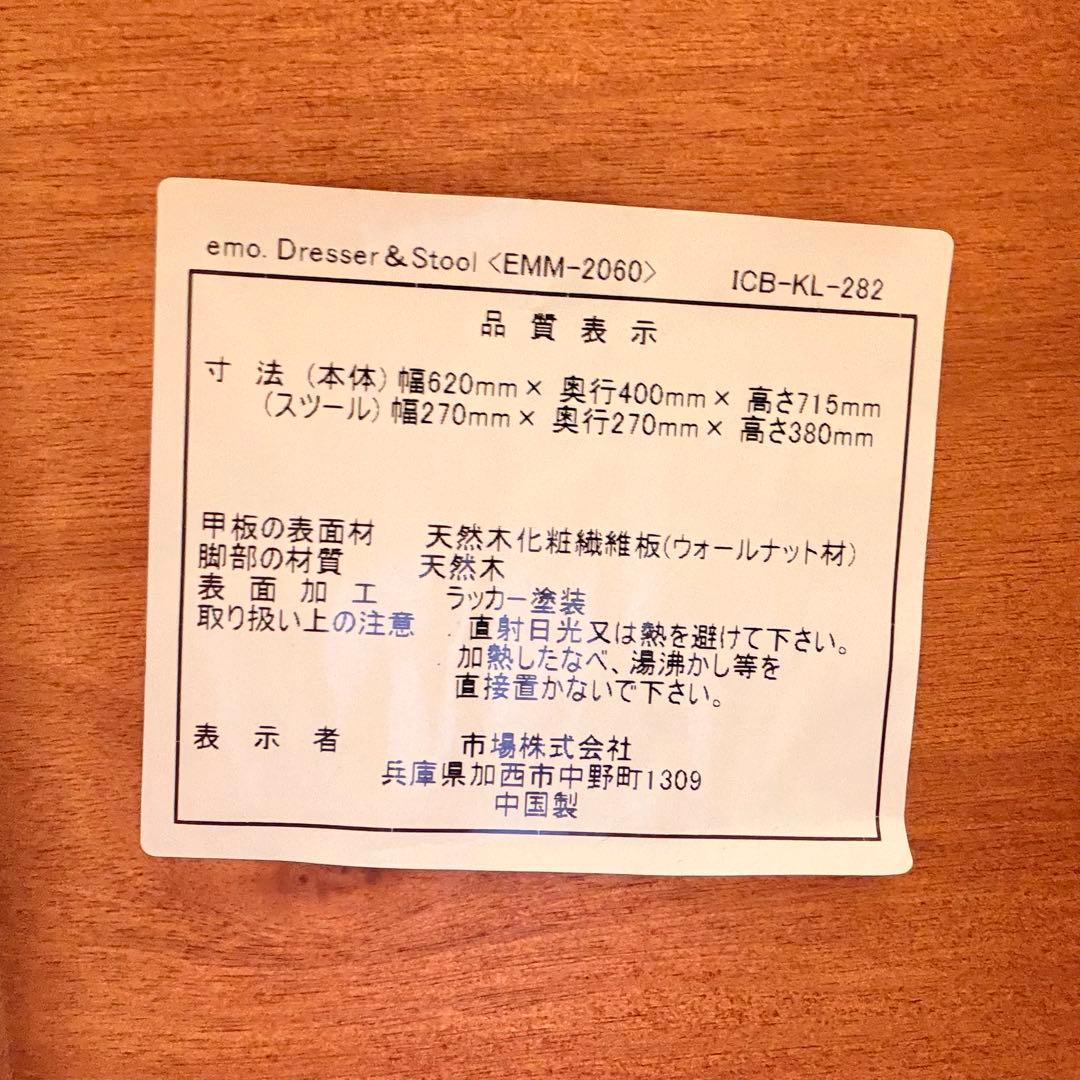 emo. Dresser & Stool <EMM-2060> ICB-KL-282
品質表示
寸法 (本体) 幅620mm× 奥行400mm× 高さ715mm
(スツール) 幅270mm× 奥行270mm× 高さ380mm
甲板の表面材 天然木化粧繊維板(ウォールナット材)
脚部の材質 天然木
表面加工 ラッカー塗装
取り扱い上の注意 直射日光又は熱を避けて下さい。
加熱したなべ、湯沸かし等を
直接置かないで下さい。
表示者 市場株式会社
兵庫県加西市中野町1309
中国製